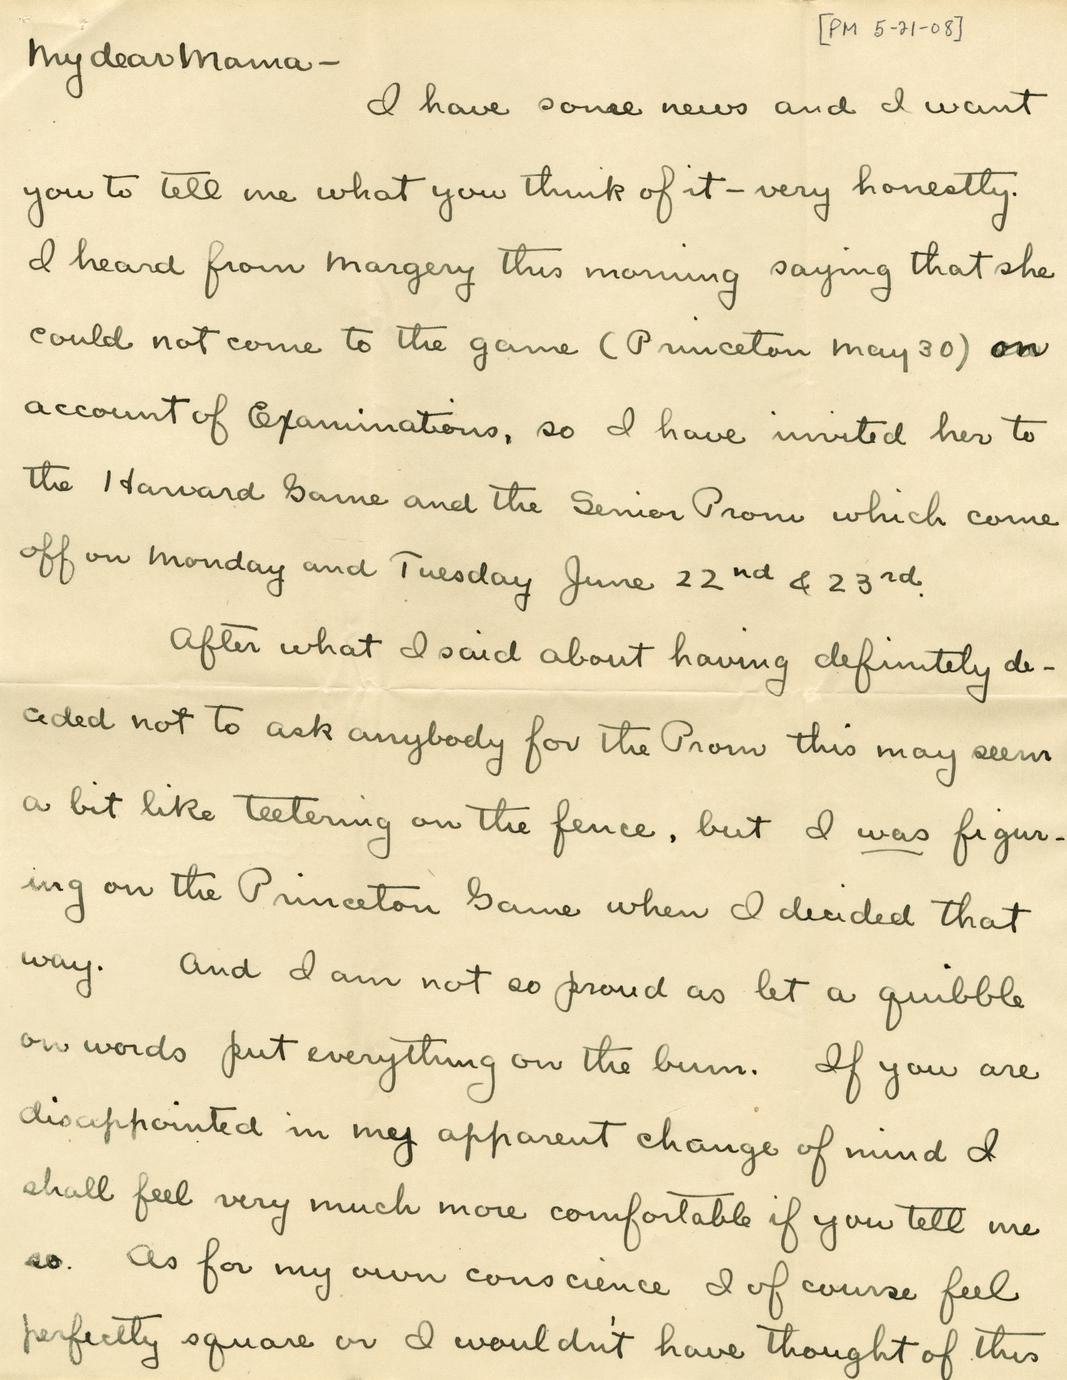 [PM 5-21-08]
My dear Mama-
I have some news and I want
you to tell me what you think of it - very honestly.
I heard from Margery this morning saying that she
could not come to the game (Princeton May 30) on
account of Examinations, so I have invited her to
the Harvard Game and the Senior Prom which come
off on Monday and Tuesday June 22nd & 23rd.
After what I said about having definitely de-
cided not to ask anybody for the Prom this may seem
a bit like teetering on the fence, but I was figur-
ing on the Princeton Game when I decided that
way. And I am not so proud as let a quibble
on words put everything on the bum. If you are
disappointed in my apparent change of mind I
shall feel very much more comfortable if you tell me
so. As for my own conscience I of course feel
perfectly square or I wouldn't have thought of this